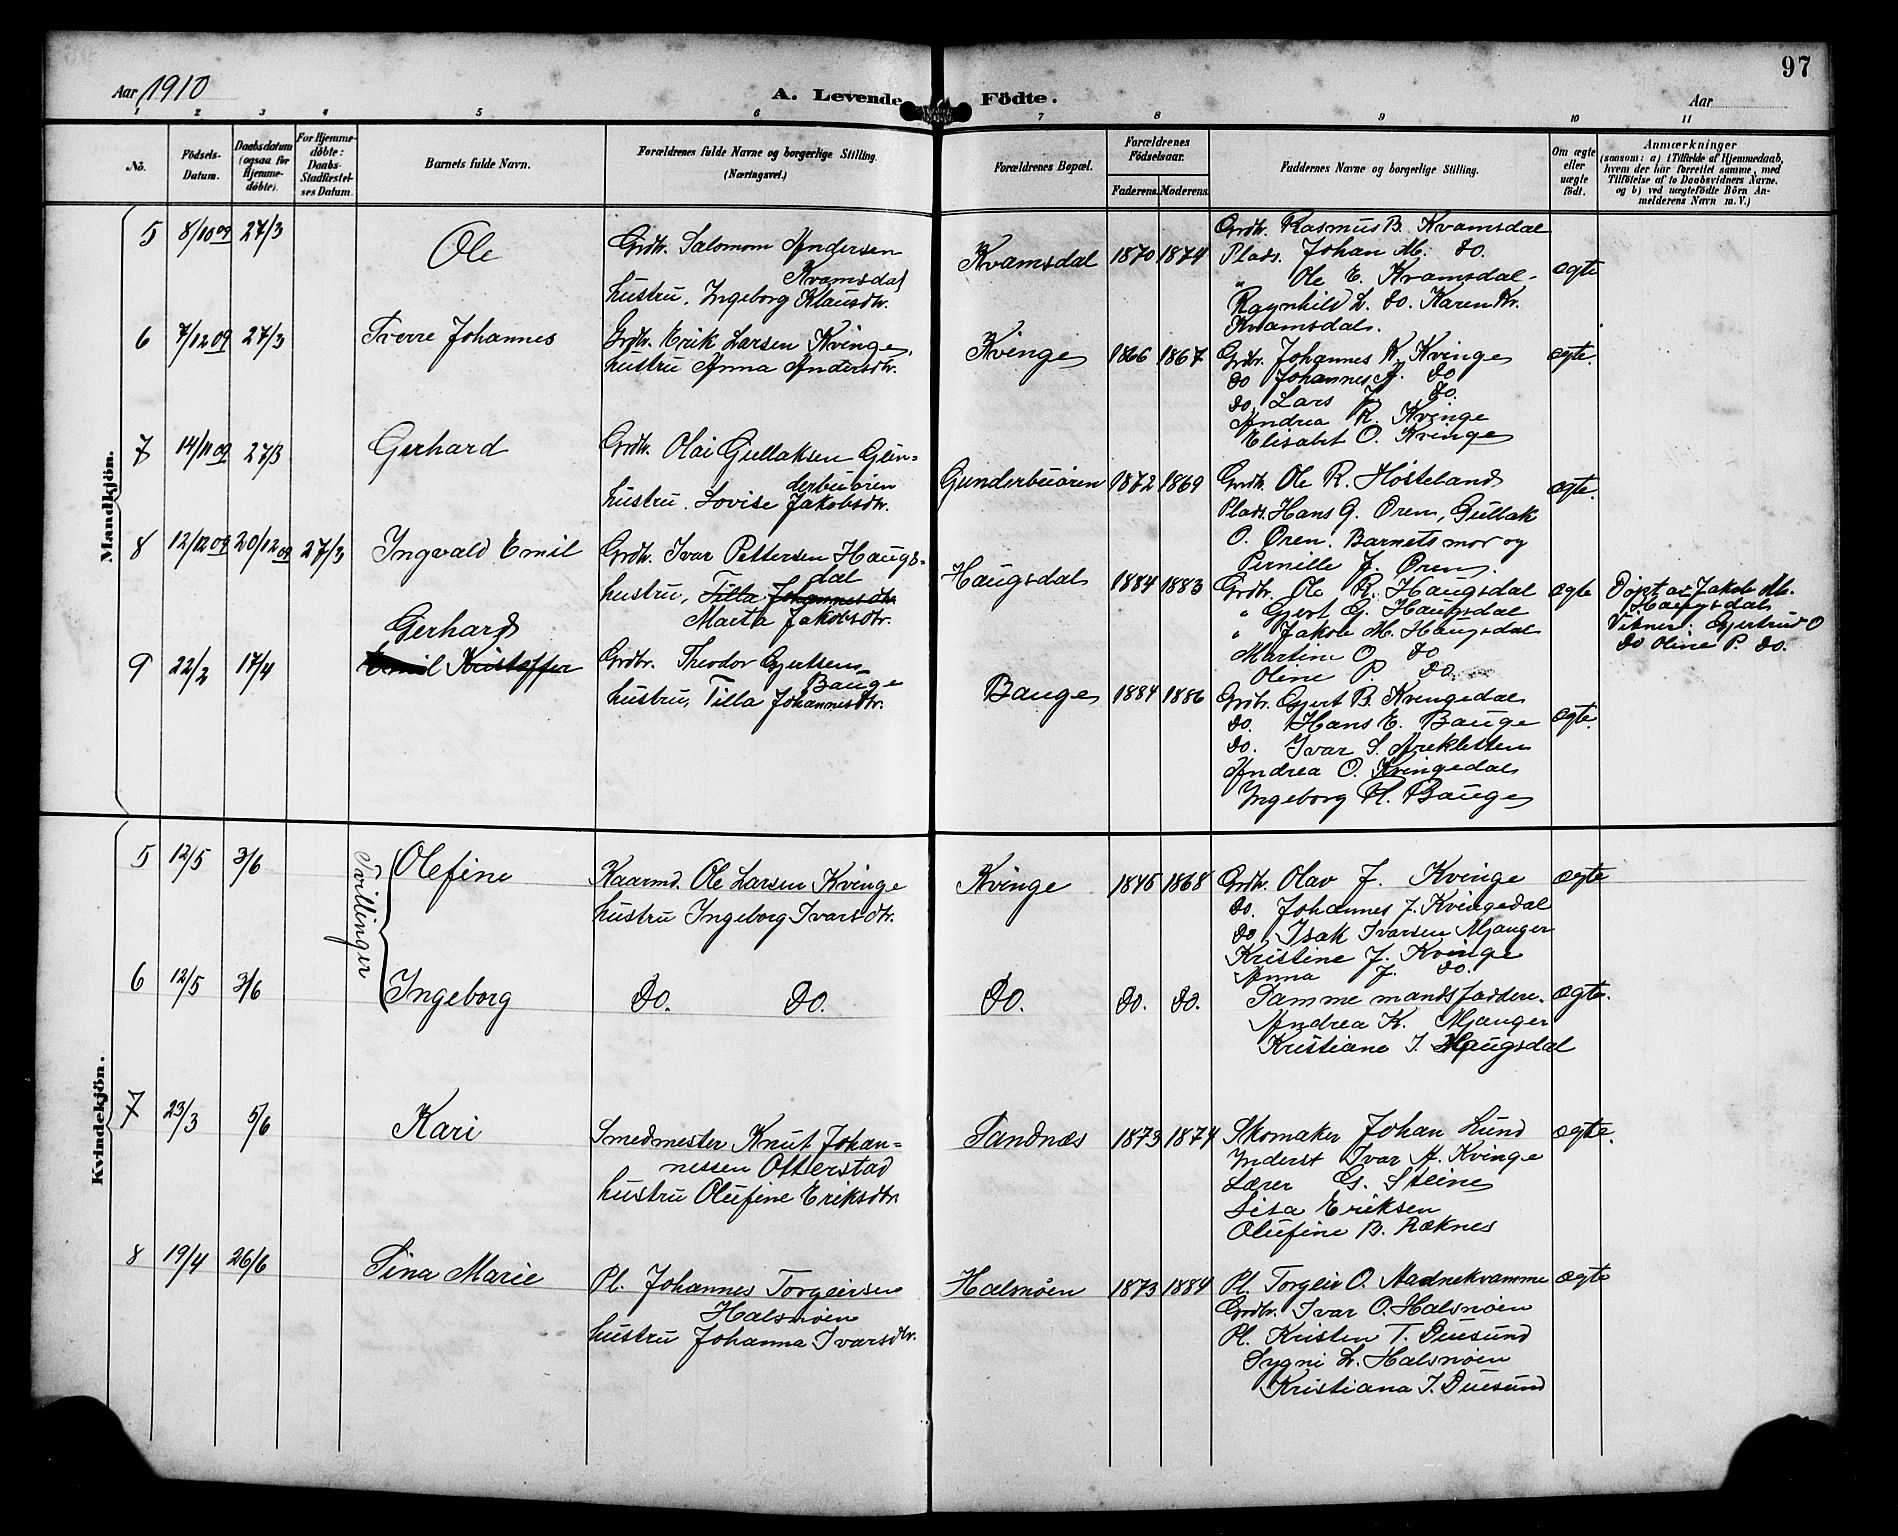 97
Aar 1910
A. Levende Födte.
Aar
1 2 3 4 5 6 7 8 9 10 11
No.
Födsels-
Datum.
Daabsdatum
(ogsaa for
Hjemme-
döbte).
For Hjemme-
döbte:
Daabs-
Stadfæstel-
ses Datum.
Barnets fulde Navn.
Forældrenes fulde Navne og borgerlige Stilling.
(Næringsvei.)
Forældrenes Bopæl.
Forældrenes
Födselsaar.
Faderens. Moderens.
Faddernes Navne og borgerlige Stilling.
Om ægte
eller
uægte
födt.
Anmærkninger
(saasom: a) i Tilfælde af Hjemmedaab,
hvem der har forrettet samme, med
Tilföielse af to Daabsvidners Navne,
og b) ved uægtefödte Börn An-
melderens Navn m. V.)
Mandkjön.
5 8/10 09 27/3
Ole
Grdbr. Salomon Andersen
Kvamsdal
hustru. Ingeborg Klausdtr.
Kvamsdal 1870 1874
Grdbr. Rasmus B. Kvamsdal
Plads. Johan M. do.
" Ole E. Kvamsdal
Ragnhild L. do. Karen Kr.
Kvamsdal.
ægte
6 7/12 09 27/3
Sverre Johannes
Grdbr. Erik Larsen Kvinge,
hustru Anna Andersdtr.
Kvinge 1866 1867
Grdbr. Johannes K. Kvinge
do Johannes A. do
do. Lars J. do.
Andrea R. Kvinge
Elisabet O. Kvinge
ægte.
7 14/11 09 27/3
Gerhard
Grdbr. Olai Gullaksen Gun-
derbuören
hustru. Lovise Jakobsdtr.
Gunderbuören 1872 1869
Grdbr. Ole R. Hosteland
Plads. Hans G. Ören, Gullak
O. Ören. Barnets mor og
Pernille J. Ören.
ægte.
8 12/12 09 20/12 09 27/3
Ingvald Emil
Grdbr. Ivar Pettersen Haugs-
dal
hustru, Tilla Johannesdtr.
Marta Jakobsdtr.
Haugsdal 1884 1883
Grdbr. Ole R. Haugsdal
" Gjert G. Haugsdal
" Jakob M. Haugsdal
Martine O. do
Oline P. do.
ægte
Döpt av Jakob M.
Haugsdal
Vitner: Gjertrud O
do Oline P. do.
9 22/2 17/4
Gerhard
Emil Kristoffer
Grdbr. Theodor Gjertsen
Bauge
hustru, Tilla Johannesdtr.
Bauge 1884 1886
Grdbr. Gjert B. Kvingedal
do. Hans E. Bauge
do. Ivar S.
Andrea O. Kvingedal
Ingeborg H. Bauge
ægte.
Kvindekjön.
Tvillinger
5 12/5 3/6
Olefine
Kaarmd. Ole Larsen Kvinge
hustru Ingeborg Ivarsdtr.
Kvinge 1845 1868
Grdbr. Olav J. Kvinge
do. Johannes J. Kvingedal
do. Isak Ivarsen Mjanger
Kristine J. Kvinge
Anna J. do.
ægte
6 12/5 3/6
Ingeborg
do. do.
do. do. do.
Samme mandsfaddere.
Andrea K. Mjanger
Kristiane I. Haugsdal
ægte.
7 23/3 5/6
Kari
Smedmester Knut Johan-
nessen Otterstad
hustru Olufine Eriksdtr.
Sandnæs 1873 1874
Skomaker Johan Lund
Inderst Ivar A. Kvinge
Lærer G. Steine
Lisa Eriksen
Olufine B. Ræknes
ægte.
8 19/4 26/6
Sina Marie
Pl. Johannes Torgeirsen
Halsnöen
hustru Johanna Ivarsdtr.
Halsnöen 1873 1884
Pl. Torgeir O. Madnekvamme
Grdbr. Ivar O. Halsnöen
Pl. Kristen T. Duesund
Sygni L. Halsnöen
Kristiana I. Duesund
ægte